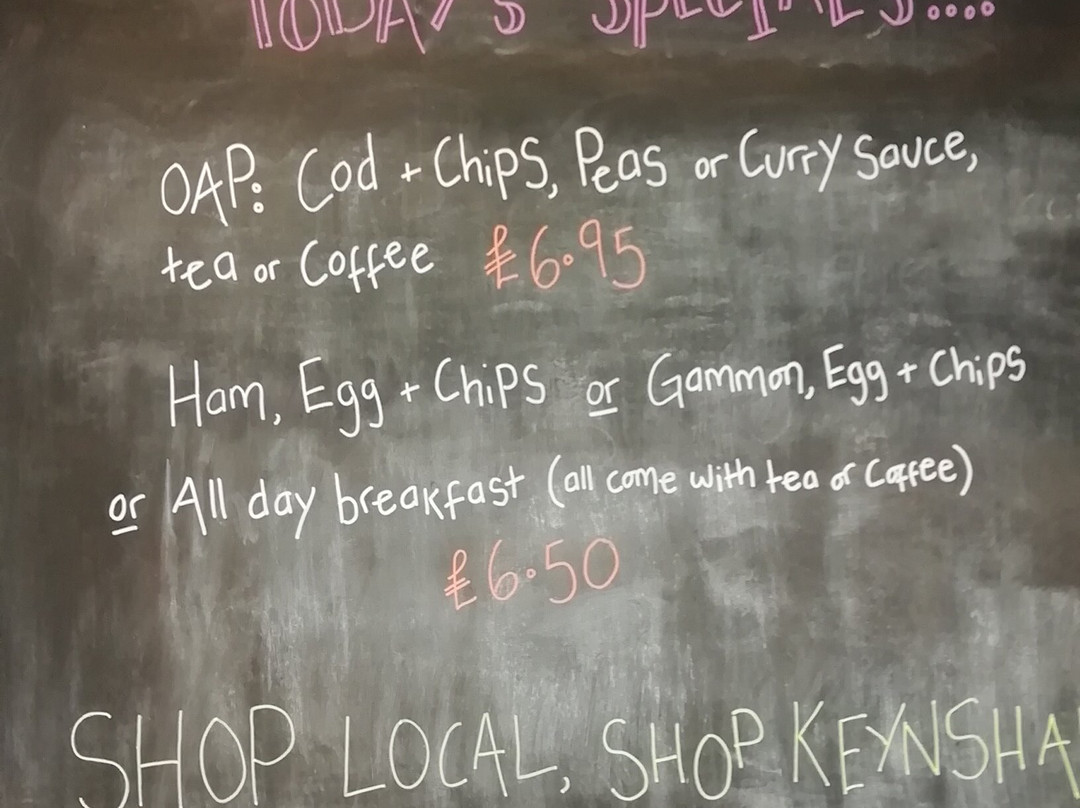 TODAY'S SPECIALS....
OAP: Cod + Chips, Peas or Curry Sauce,
tea or Coffee £6.95
Ham, Egg + Chips or Gammon, Egg + Chips
or All day breakfast (all come with tea or Coffee)
£6.50
SHOP LOCAL, SHOP KEYNSHA